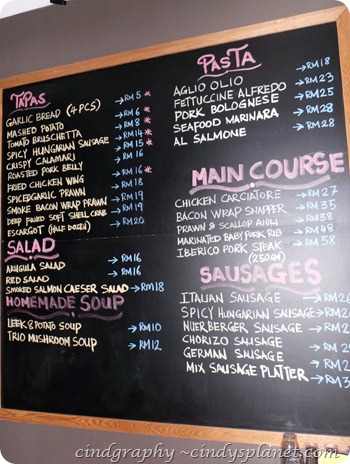 TAPAS
GARLIC BREAD (4 PCS) → RM 5 *
MASHED POTATO → RM 6 *
TOMATO BRUSCHETTA → RM 8 *
SPICY HUNGARIAN SAUSAGE → RM 14 *
CRISPY CALAMARI → RM 15 *
ROASTED PORK BELLY → RM 16
FRIED CHICKEN WING → RM 16 *
SPICED GARLIC PRAWN → RM 18
SMOKE BACON WRAP PRAWN → RM 19
DEEP FRIED SOFT SHELL CRAB → RM 19
ESCARGOT (HALF DOZEN) → RM 20
SALAD
ARUGULA SALAD → RM 16
RED SALAD → RM 16
SMOKED SALMON CAESER SALAD → RM 18
HOMEMADE SOUP
LEEK & POTATO SOUP → RM 10
TRIO MUSHROOM SOUP → RM 12
PASTA
AGLIO OLIO → RM 18
FETTUCINE ALFREDO → RM 23
PORK BOLOGNESE → RM 25
SEAFOOD MARINARA → RM 28
AL SALMONE → RM 28
MAIN COURSE
CHICKEN CARCIATORE → RM 27
BACON WRAP SNAPPER → RM 35
PRAWN & SCALLOP AIOLI → RM 38
MARINATED BABY PORK RIB → RM 48
IBERICO PORK STEAK → RM 58
(250 GM)
SAUSAGES
ITALIAN SAUSAGE → RM 26
SPICY HUNGARIAN SAUSAGE → RM 2
NUERBERGER SAUSAGE → RM 2
CHORIZO SAUSAGE → RM 2
GERMAN SAUSAGE → RM 2
MIX SAUSAGE PLATTER → RM 3
cindgraphy ~cindysplanet.com